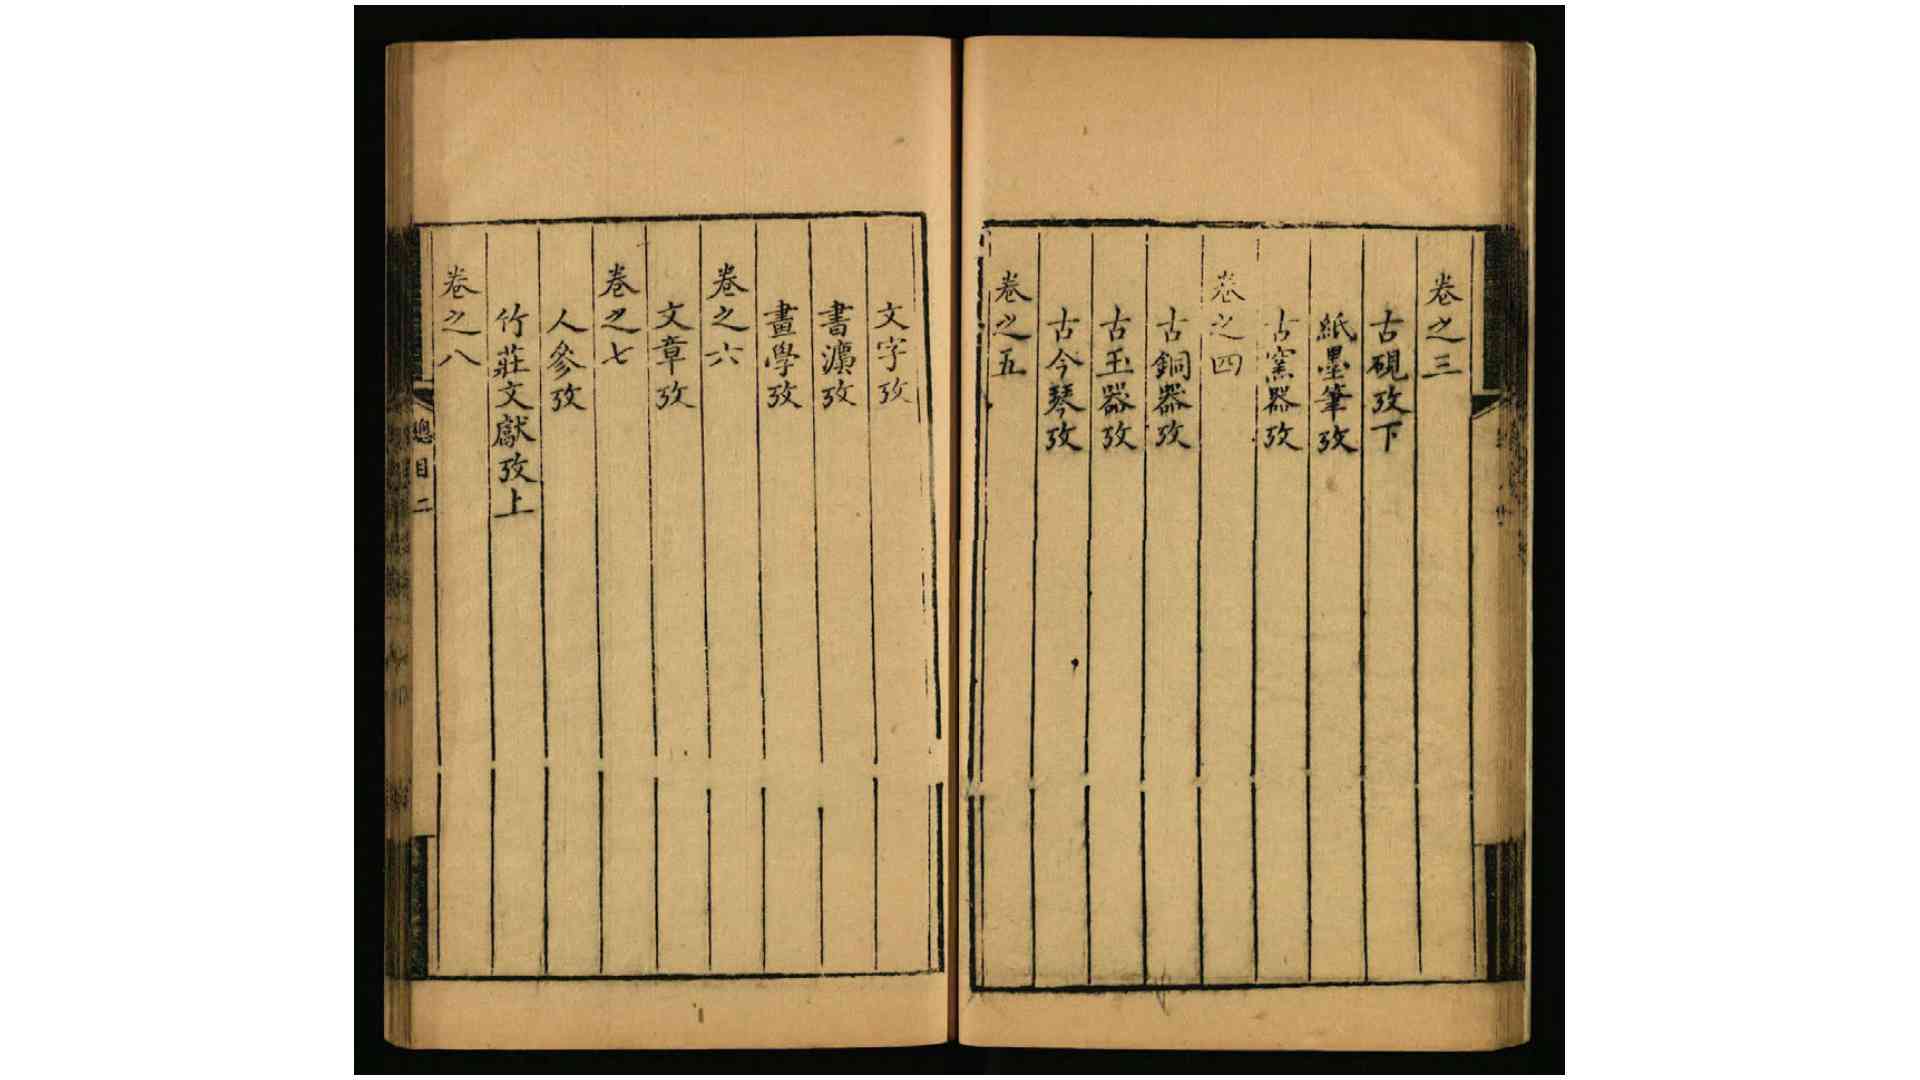 卷之三
古硯攷下
紙墨筆攷
古窯器攷
卷之四
古銅器攷
古玉器攷
古今琴攷
卷之五
文字攷
書灋攷
畫學攷
卷之六
文章攷
卷之七
人參攷
竹莊文獻攷上
卷之八
總目二